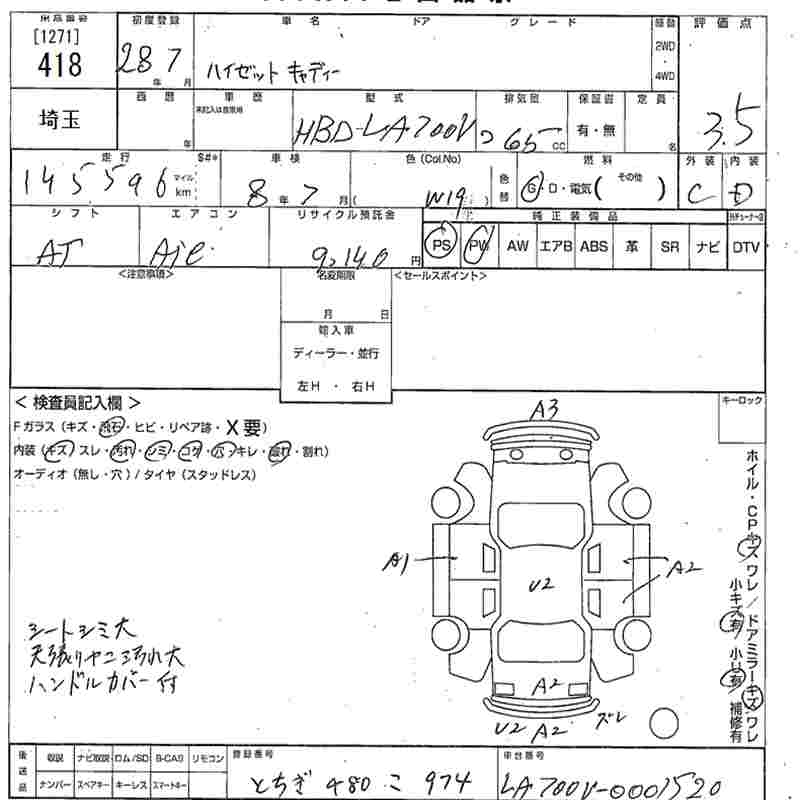 [1271]
418
初度登録 車名 ドア グレード 評価点
28年 7月 ハイゼット キャディー 2WD 4WD 3.5
埼玉
西暦 車歴 型式 排気量 保証書 定員
年 HBD-LA700V 65 cc 有・無 名
走行 S#* 車検 色(Col.No) 色替 燃料 外装 内装
145596 マイル km 8年 7月 ( W19 ) G・D・電気( その他 ) C D
シフト エアコン リサイクル預託金 純正装備品
AT 9,140円 PS PW AW エアB ABS 革 SR ナビ DTV
<注意事項> 名変期限 <セールスポイント>
月 日
輸入車
ディーラー・並行
左H ・ 右H
< 検査員記入欄 > キーロック
Fガラス(キズ・飛石・ヒビ・リペア跡・X要)
内装(キズ・スレ・汚れ・シミ・コゲ・穴・キレ・取れ・割れ)
オーディオ(無し・穴)/タイヤ(スタッドレス)
A3
A1 U2 A2
A2
U2 A2 ズレ
シートシミ大
天張りヤニ汚れ大
ハンドルカバー付
ホイル・CPキズワレ/ドアミラーキズ・ワレ
小キズ有 小U有 補修有
後送品 取説 ナビ取説 ロム/SD B-CAS リモコン 登録番号 車台番号
ナンバー スペアキー キーレス スマートキー とちぎ 480 こ 974 LA700V-0001520